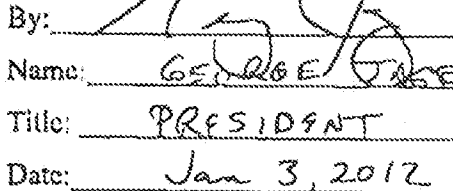 By:
Name: GEORGE
Title: PRESIDENT
Date: Jan 3, 2012